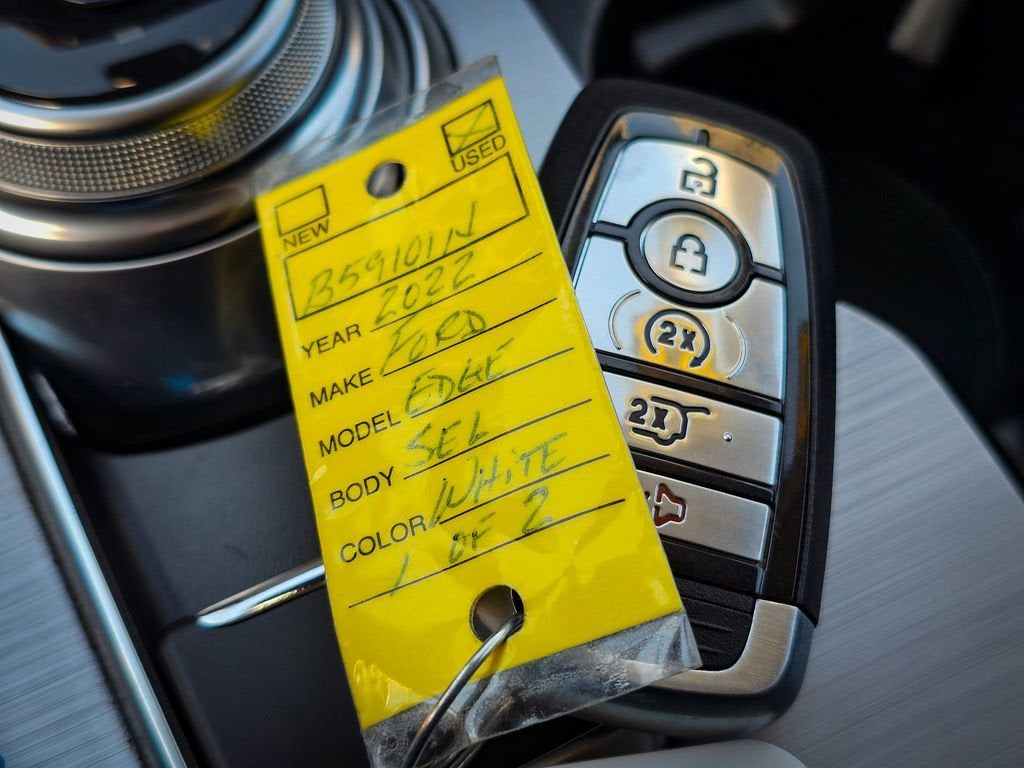 NEW
USED
B59101N
YEAR 2022
MAKE FORD
MODEL EDGE
BODY SEL
COLOR WHITE
1 OF 2
2x
2x